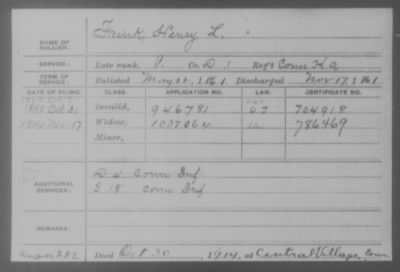 NAME OF SOLDIER: Frink, Henry L.
SERVICE: Late rank, P. Co. D, 1 Reg't Conn H.A
TERM OF SERVICE: Enlisted May 22, 1861 Discharged Nov 17, 1861
DATE OF FILING. CLASS. APPLICATION NO. LAW. CERTIFICATE NO.
Oct 31 Invalid, 946781 704918
1914 Nov 17 Widow, 1037064 786469
Minor,
ADDITIONAL SERVICES: D 11 Conn Inf
G 18 Conn Inf
REMARKS:
Died Oct 30, 1914, at Central Village, Conn